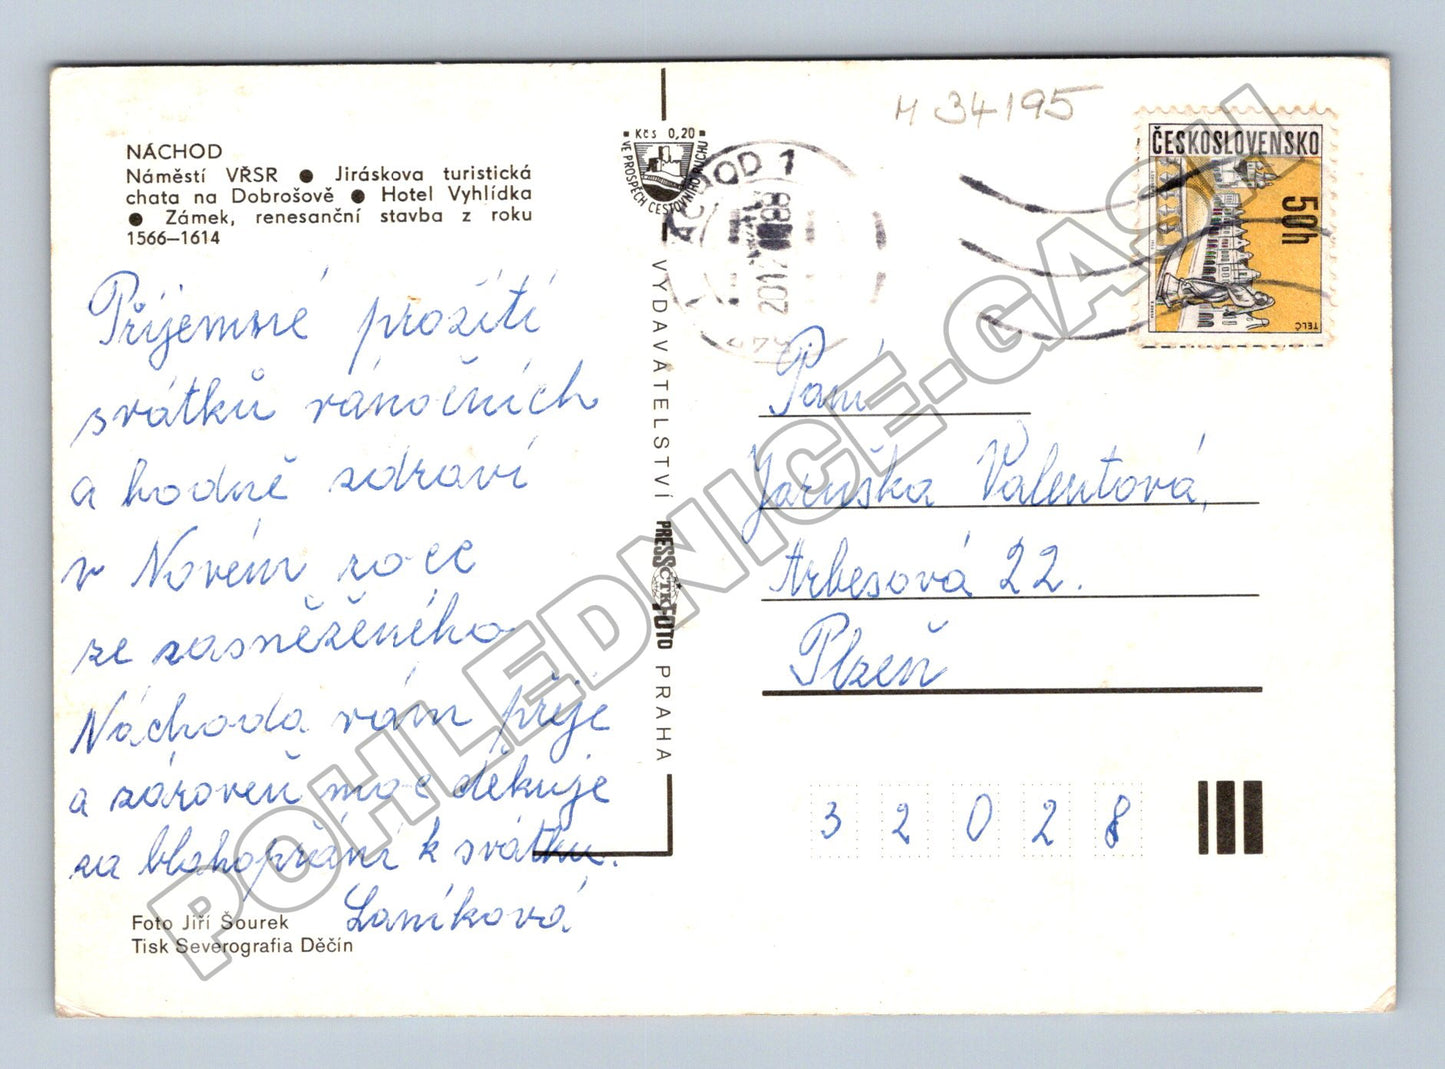 NÁCHOD
Náměstí VŘSR ● Jiráskova turistická
chata na Dobrošově ● Hotel Vyhlídka
● Zámek, renesanční stavba z roku
1566–1614
Příjemné prožití
svátků vánočních
a hodně zdraví
v Novém roce
ze zasněženého
Náchoda vám přeje
a zároveň moc děkuje
za blahopřání k svátku.
Laníková
Foto Jiří Šourek
Tisk Severografia Děčín
Kčs 0,20
VE PROSPĚCH CESTOVNÍHO RUCHU
VYDAVATELSTVÍ PRESSFOTO PRAHA
ČTK
NÁCHOD 1
M 34195
ČESKOSLOVENSKO
50h
TELČ
Paní
Jaruška Valentová,
Arbesová 22.
Plzeň
32028
POHLEDNICE-GASU